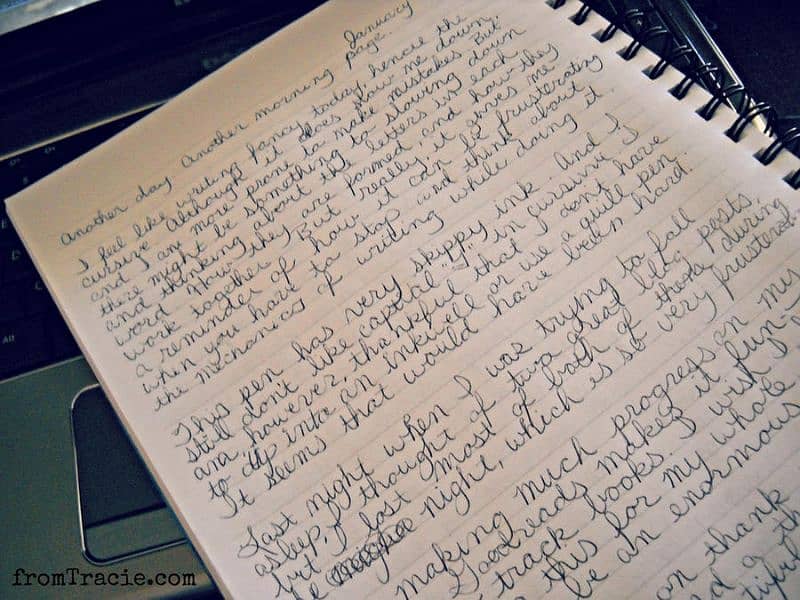 January
Another day Another morning page.
I feel like writing fancy today, hence the
cursive. Although it does slow me down
and I am more prone to make mistakes. But
there might be something to slowing down
and thinking about the letters in each
word. How they are formed and how they
work together. But really, it gives me
a reminder of how it can be frusterating
when you have to stop and think about
the mechanics of writing while doing it.
This pen has very skippy ink. And I
still don't like capital "I" in cursive. I
am, however, thankful that I don't have
to dip into an inkwell or use a quill pen
It seems that would have been hard.
Last night when I was trying to fall
asleep, I thought of two great blog posts,
but I lost most of both of them during
the night, which is so very frusterat
making much progress on my
Goodreads makes it fun-
track books. I wish I
this for my whole
be an enormous
on thank
fromTracie.com